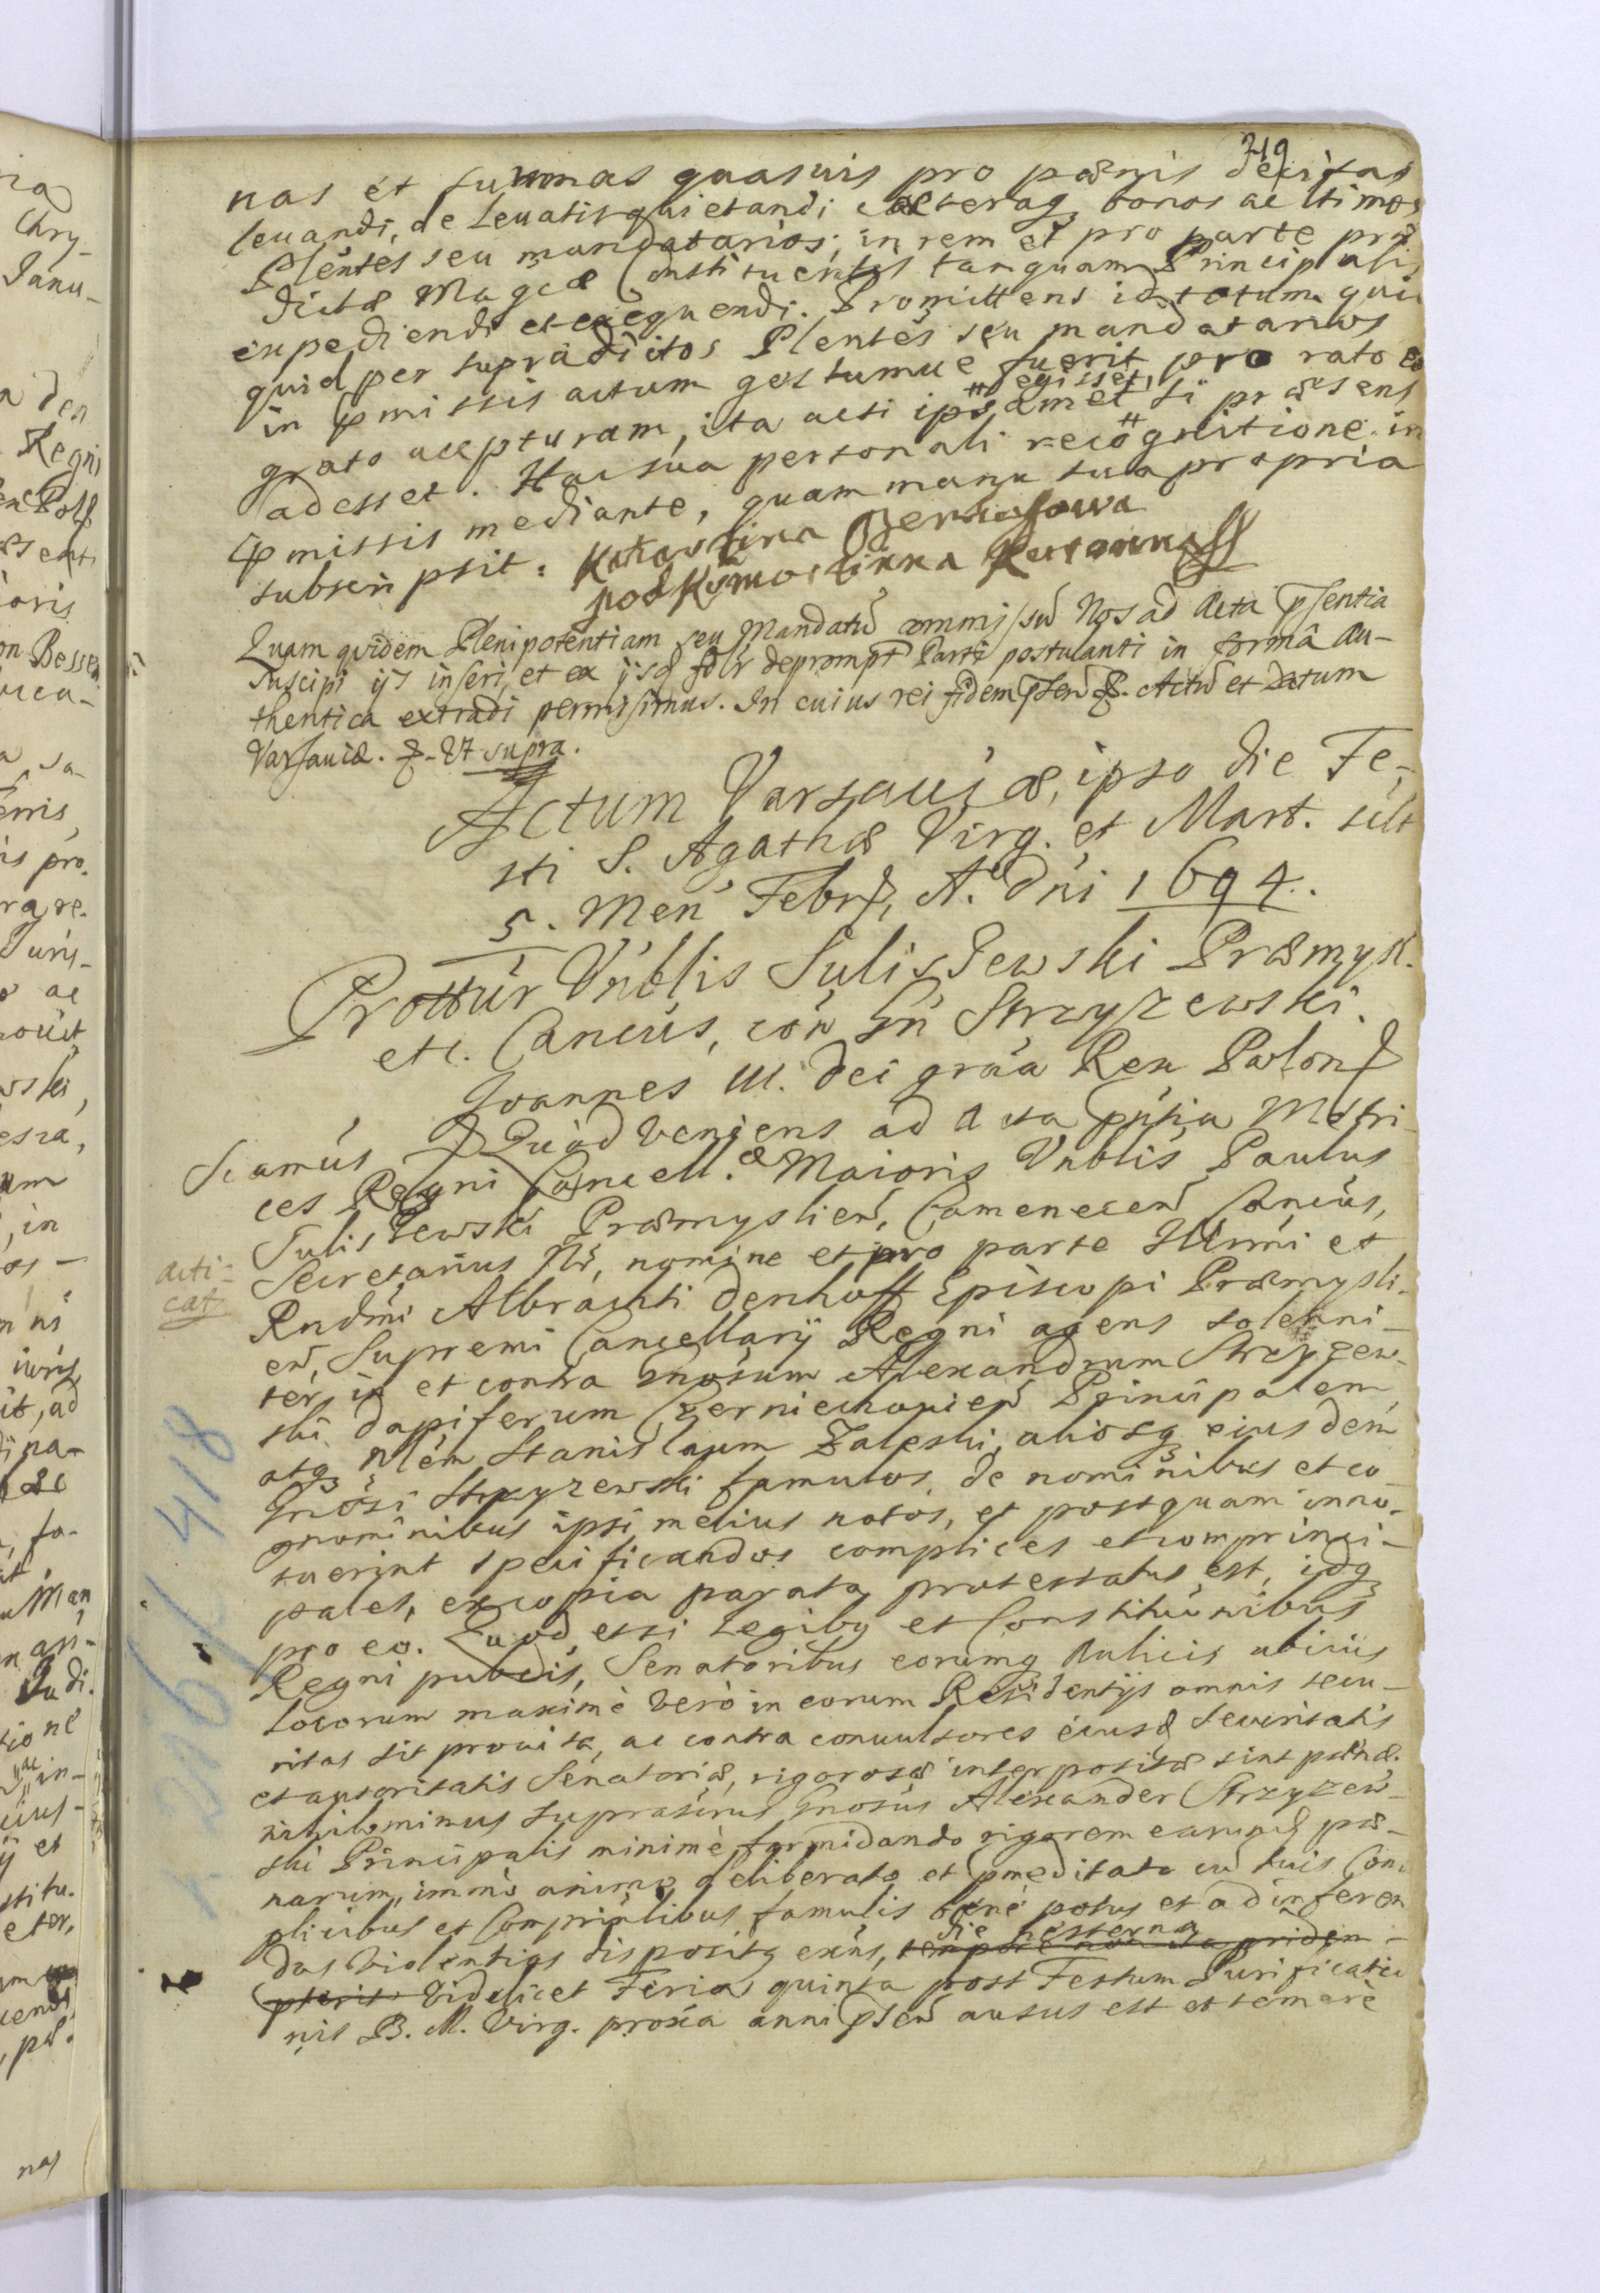 719
nas et summas quasuis pro pœnis decisas
leuandi, de leuatis quietandi cæteraq bonos ac ltimos
Plentes seu mandatarios, in rem et pro parte præ-
dictæ Magcæ Constituentis tanquam Principalis
expediendi et exequendi. Promittens id totum quic
quid per supradictos Plentes seu mandatarios
in pmissis actum gestumue fuerit pro rato et
grato accepturam, ita acsi ipsamet egisset, si præsens
adesset. Hac sua personali recognitione in
pmissis mediante, quam manu sua propria
subscripsit.
podkomorzinna Koronna
Quam quidem Plenipotentiam seu Mandatū ommissū Nos ad Acta psentia
suscipi ijs inseri, et ex ijsq depromptū Parti postulanti in formâ Au-
thentica extradi permisimus. In cuius rei fidem psen. Actū et Datum
Varsauiæ. Ut supra.
Actum Varsauiæ, ipso die Fe-
sti S. Agathæ Virg. et Mart. scilt
5. Men Febr, A. Dni 1694.
Prottur Vrblis Suliszewski Præmysl.
etc. Cancus, con Gn Strzyzewski.
Joannes III. Dei graa Rex Polon
Scamus Quod veniens ad Acta pntia Metri
ces Regni Cancell. Maioris Vrblis Paulus
Suliszewski Præmyslien, Camenecen Cancus,
Secretarius Nr, nomine et pro parte Illrmi et
Rndmi Albrachti Denhoff Episcopi Præmysli-
acti-
cat
en, Supremi Cancellarij Regni agens solenni-
ter, in et contra Gnosum Alexandrum Strzyzew-
ski Dapiferum Czerniechouien Principalem
atq Nlem Stanislaum Zaleski, aliosq eiusdem
Gnosi Strzyzewski famulos, de nominibus et co
gnominibus ipsi melius notos, et postquam inno-
tuerint specificandos complices et comprinci-
pales, ex copia parata protestatus est, idq
pro eo. Quod etsi Legibus et Constitutionibus
Regni publcis, Senatoribus eorumq Aulicis ubiuis
locorum maximè verò in eorum Residentijs omnis secu-
ritas sit prouisa, ac contra conuulsores eiusd securitatis
et autoritatis Senatoriæ, rigorosæ interpositæ sint pœnæ.
nihilominus suprascrius Gnosus Alexander Strzyzew-
ski Principalis minimè formidando rigorem earund pœ-
narum, immò animo deliberato et pmeditato cū suis Com
plicibus et Comprinlibus famulis bene potus et ad inferen
das violentias dispositus exns, die hesterna tempore non ita pridem
pterito videlicet Feria quinta post Festum Purificatio
nis B. M. Virg. proxa anni psen ausus est et temerè
1961 418